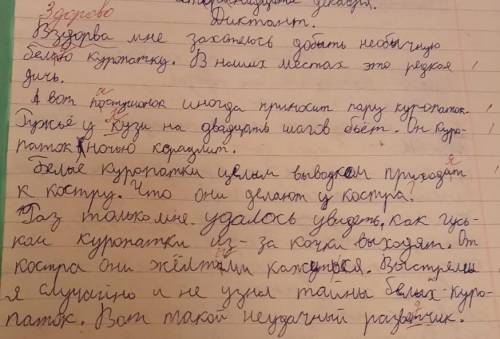 Здорово
Диктант.
Вздорва мне захотелось добыть необычную
белую куропатку. В наших местах это редкая
дичь.
А вот постушонок иногда приносит пару куропаток.
Ружьё у Кузи на двадцать шагов бьёт. Он куро-
паток ночью караулит.
Белые куропатки целым выводком приходят
к костру. Что они делают у костра?
Раз только мне удалось увидеть, как гусь-
ком куропатки из-за кочки выходят. От
костра они жёлтыми кажуться. Выстрелил
я случайно и не узнал тайны белых куро-
паток. Вот такой неудачный разветчик.